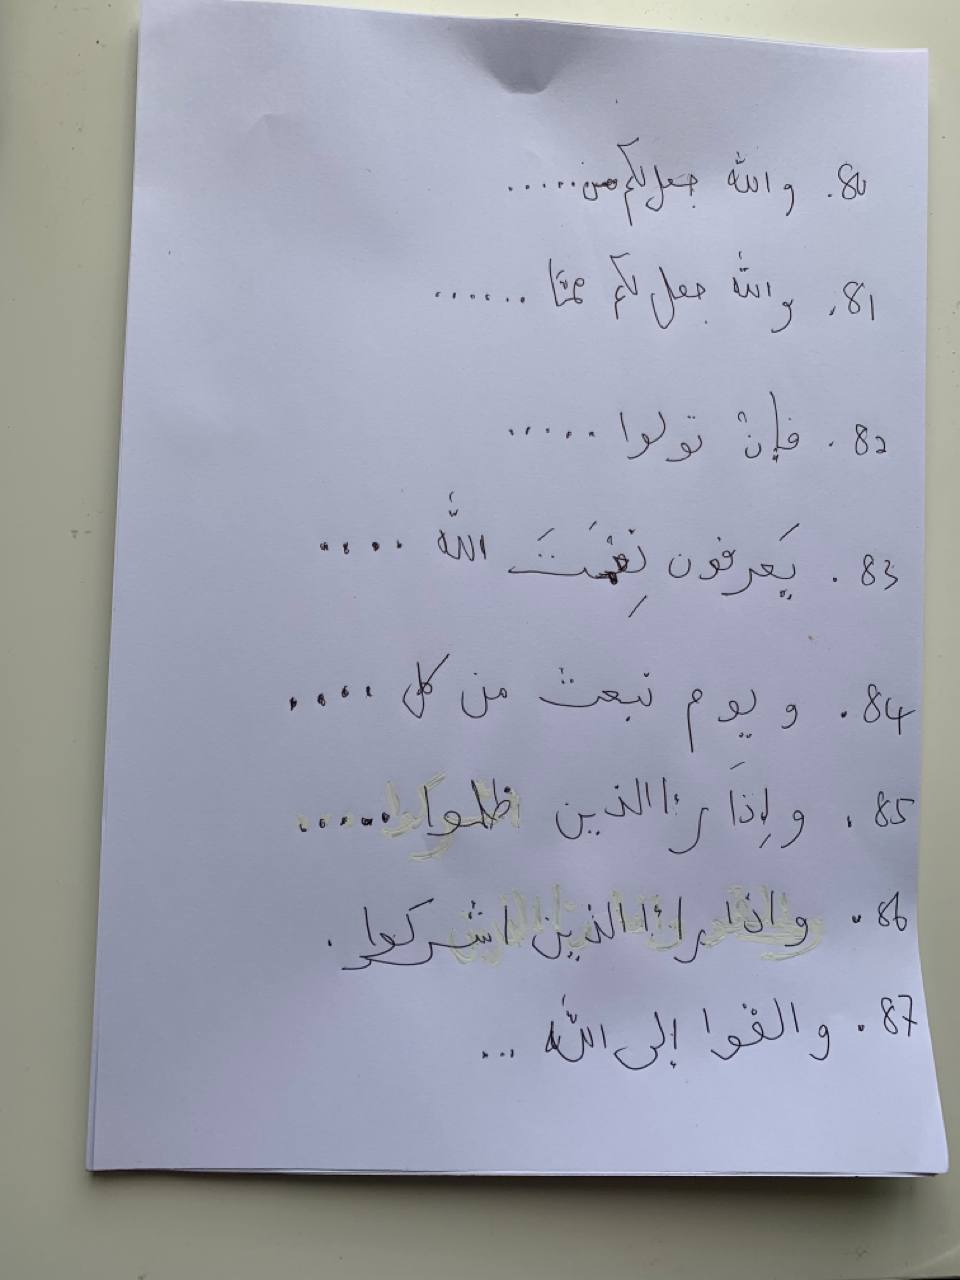 80. والله جعل لكم من .....
81. والله جعل لكم ممّا ......
82. فإنْ تولوا .....
83. يَعرفون نِعْمَتَ الله ....
84. و يوم نبعث من كل ....
85. و إِذَا رءا الذين ظلموا .....
86. و اذا رءا الذين اشركوا .
87. و القوا إلى الله ...